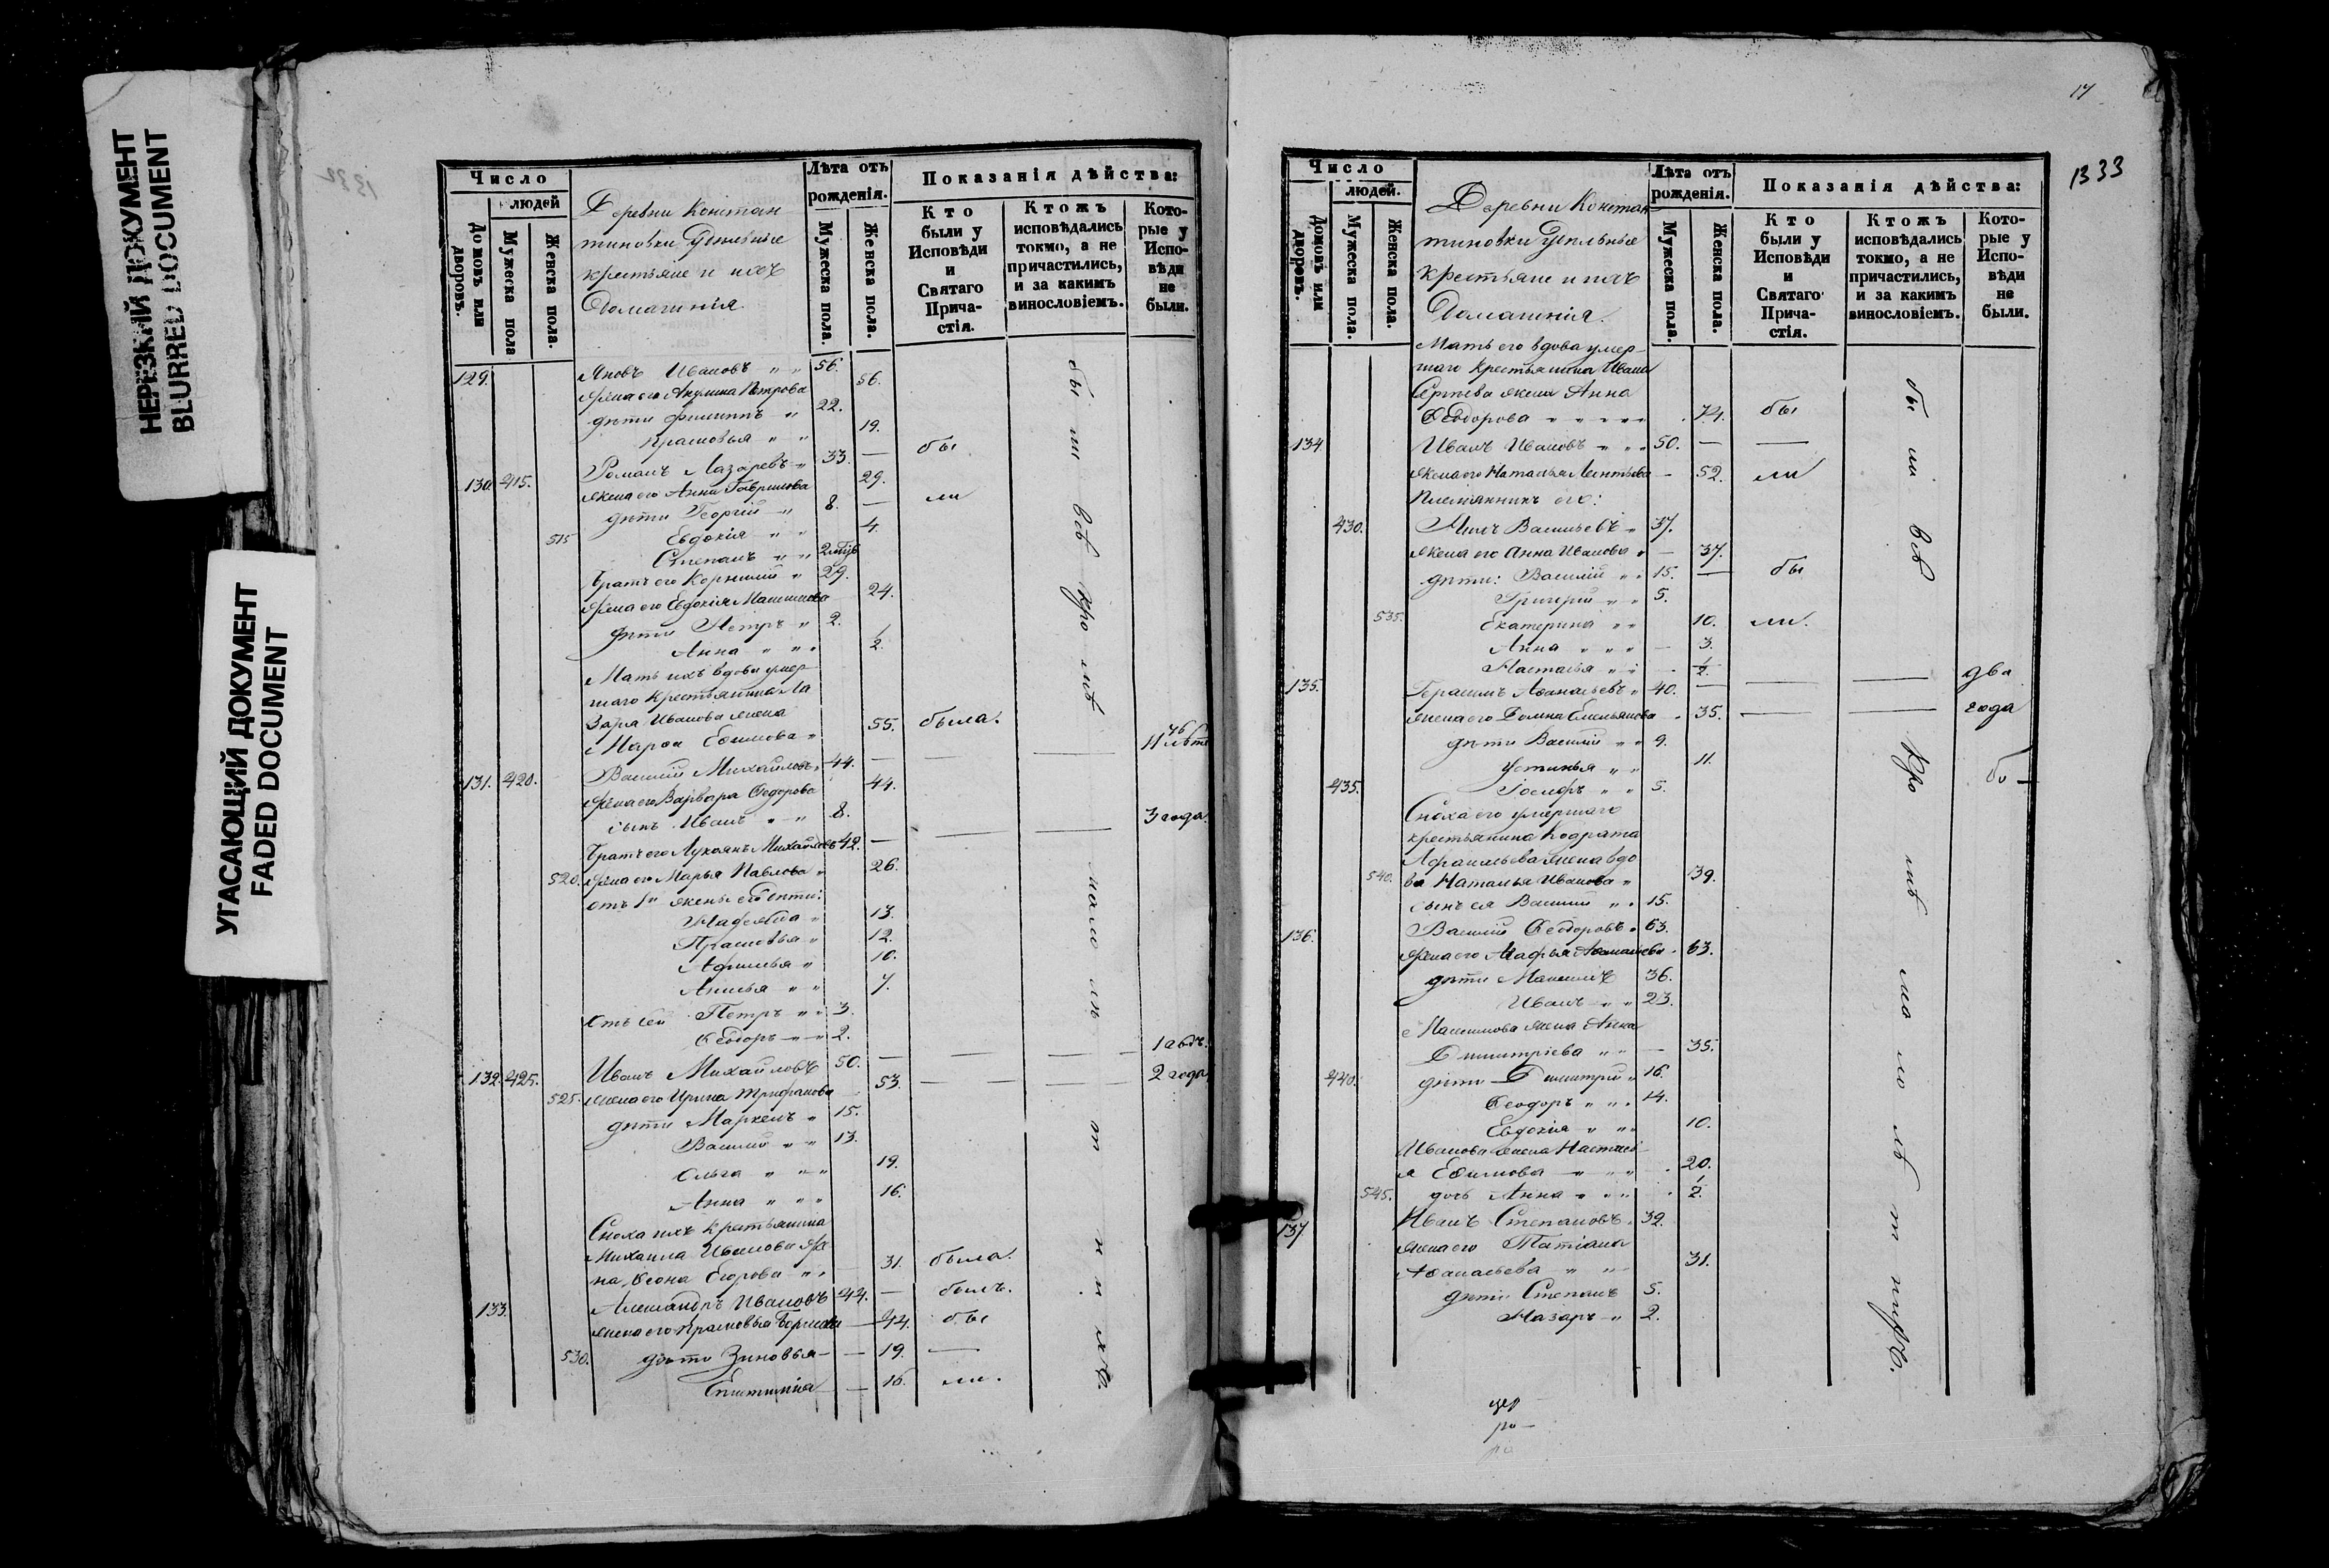 НЕРЕЗКИЙ ДОКУМЕНТ
BLURRED DOCUMENT
УГАСАЮЩИЙ ДОКУМЕНТ
FADED DOCUMENT
Число
людей
Домовъ или дворовъ.
Мужеска пола
Женска пола.
Деревни Констан
тиновки Удельные
крестьяне и ихъ
Домашнія
Лѣта отъ рожденія.
Мужеска пола.
Женска пола.
Показанія дѣйства:
Кто были у Исповѣди и Святаго Прича-стія.
Ктожъ исповѣдались токмо, а не причастились, и за какимъ винословіемъ.
Кото-рые у Испо-вѣди не были.
129. Яковъ Ивановъ 56.
Жена его Акулина Петрова 56.
дѣти Филиппъ 22.
19.
130. 415. Романъ Лазаревъ 33. — бы
жена его Анна Гаврилова 29.
дѣти Георгій 8. — ли
515 Евдокія 4.
Степанъ
Братъ его Корнилій 29.
Жена его Евдокія Максимова 24.
дѣти Петръ 2.
Анна 1/2.
Мать ихъ вдова умер
шаго крестьянина Ла
заря Иванова жена
Марѳа Ефимова 55. была.
131. 420. Василій Михайловъ 44. —
Жена его Варвара Ѳедорова 44.
сынъ Иванъ 8. 3 года.
Братъ его Михайловъ 42. —
520. Жена его Марья Павлова 26.
отъ 1й жены его дѣти:
13.
Прасковья 12.
10.
Анисья 7.
отъ сей Петръ 3.
Ѳедоръ 2.
132. 425. Иванъ Михайловъ 50. —
525. жена его Ирина Трифанова 53. — 2 года
дѣти Маркелъ 15.
Василій 13.
Ольга 19.
Анна 16.
Сноха ихъ крестьянина
Михаила Иванова же
на Егорова 31. была.
133. Александръ Ивановъ 44. — былъ.
жена его Прасковья 44. бы
530. дѣти Зиновья 19. —
16. ли.
17
1333
Число
людей.
Домовъ или дворовъ.
Мужеска пола.
Женска пола.
Деревни Констан
тиновки Удельные
крестьяне и ихъ
Домашнія.
Лѣта отъ рожденія.
Мужеска пола.
Женска пола.
Показанія дѣйства:
Кто были у Исповѣди и Святаго Прича-стія.
Ктожъ исповѣдались токмо, а не причастились, и за какимъ винословіемъ.
Кото-рые у Испо-вѣди не были.
Мать его вдова умер
шаго крестьянина Ивана
Сергѣева жена Анна
Ѳедорова 74. бы
134 Иванъ Ивановъ 50. — —
жена его Наталья Леонтьева — 52. ли
Племянникъ его:
430. Васильевъ 37.
жена его Анна Иванова — 37.
дѣти: Василій 15. — бы
Григорій 5.
535. Екатерина 10. ли.
Анна — 3.
Настасья 1/2.
135. Герасимъ Аѳанасьевъ 40. — — — два
жена его Домна Емельянова 35. — — года
дѣти Василій 9.
Устинья 11.
435. Іосифъ 5.
Сноха его умершаго
крестьянина Кодрата
Афанасьева жена вдо
540. ва Наталья Иванова 39.
сынъ ея Василій 15.
136. Василій Ѳедоровъ 63.
жена его Агафья 63.
дѣти Максимъ 36.
Иванъ 23.
Максимова жена Анна
Димитріева — 35.
440. дѣти Димитрій 16.
Ѳеодоръ 14.
Евдокія 10.
Иванова жена Настась
я Ефимова 20.
545. дочь Анна 1/2.
137 Иванъ Степановъ 39.
жена его Татіана
Аѳанасьева 31.
дѣти Степанъ 5.
Назаръ 2.